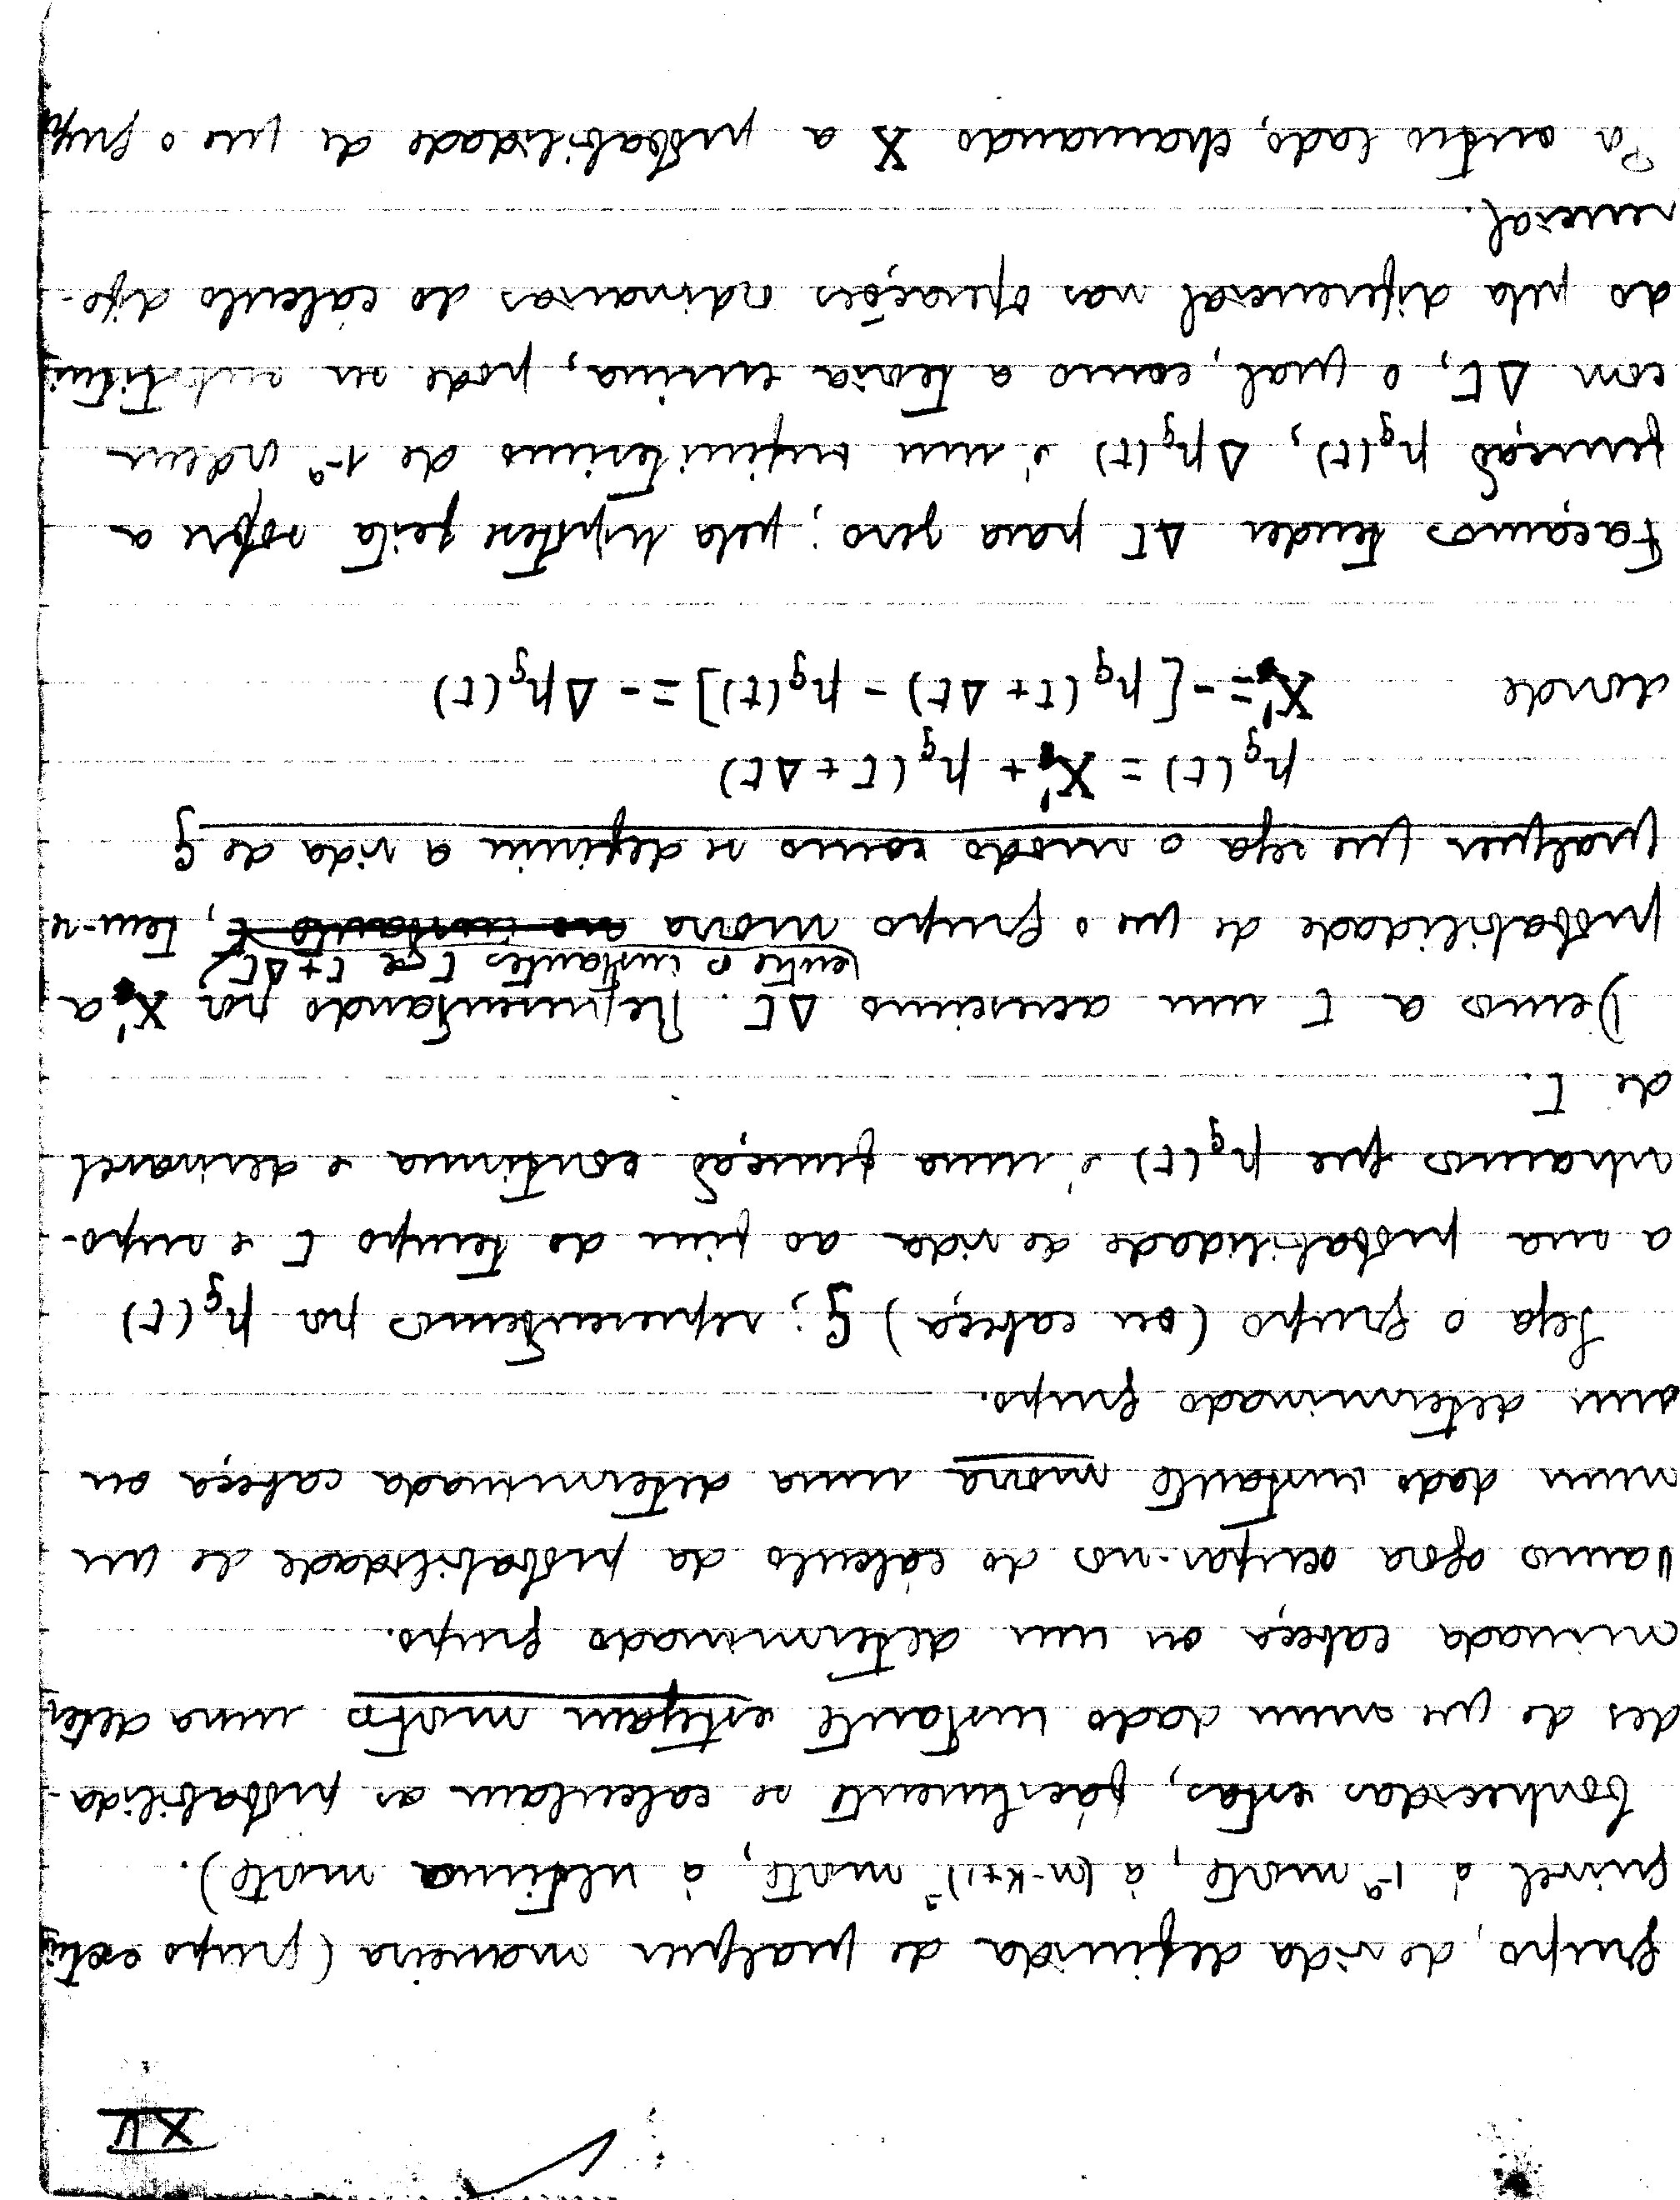 XV
grupo, de vida definida de qualquer maneira (grupo extin
guivel á 1ª morte, á (n-k+1)ª morte, á ultima morte).
Conhecidas estas, facilmente se calculam as probabilida-
des de que num dado instante estejam mortos uma deter
minada cabeça ou um determinado grupo.
Vamos agora ocupar-nos do cálculo da probabilidade de que
num dado instante morra uma determinada cabeça ou
um determinado grupo.
Seja o grupo (ou cabeça) g; representemos por p_g(t)
a sua probabilidade de vida ao fim do tempo t e supo-
nhamos que p_g(t) é uma função continua e derivavel
de t.
Demos a t um acrescimo Δt. Representando por X' a
(entre os instantes t e t+Δt)
probabilidade de que o grupo morra no instante t, tem-se
qualquer que seja o modo como se definiu a vida de g
p_g(t) = X' + p_g(t+Δt)
donde X' = -[p_g(t+Δt) - p_g(t)] = -Δp_g(t)
Façamos tender Δt para zero; pela hipótese feita sobre a
função p_g(t), Δp_g(t) é um infinitesimo de 1ª ordem
com Δt, o qual, como a teoria ensina, pode ser substitui
do pela diferencial nas operações ordinarias do cálculo dife-
rencial.
Por outro lado, chamando X a probabilidade de que o grupo